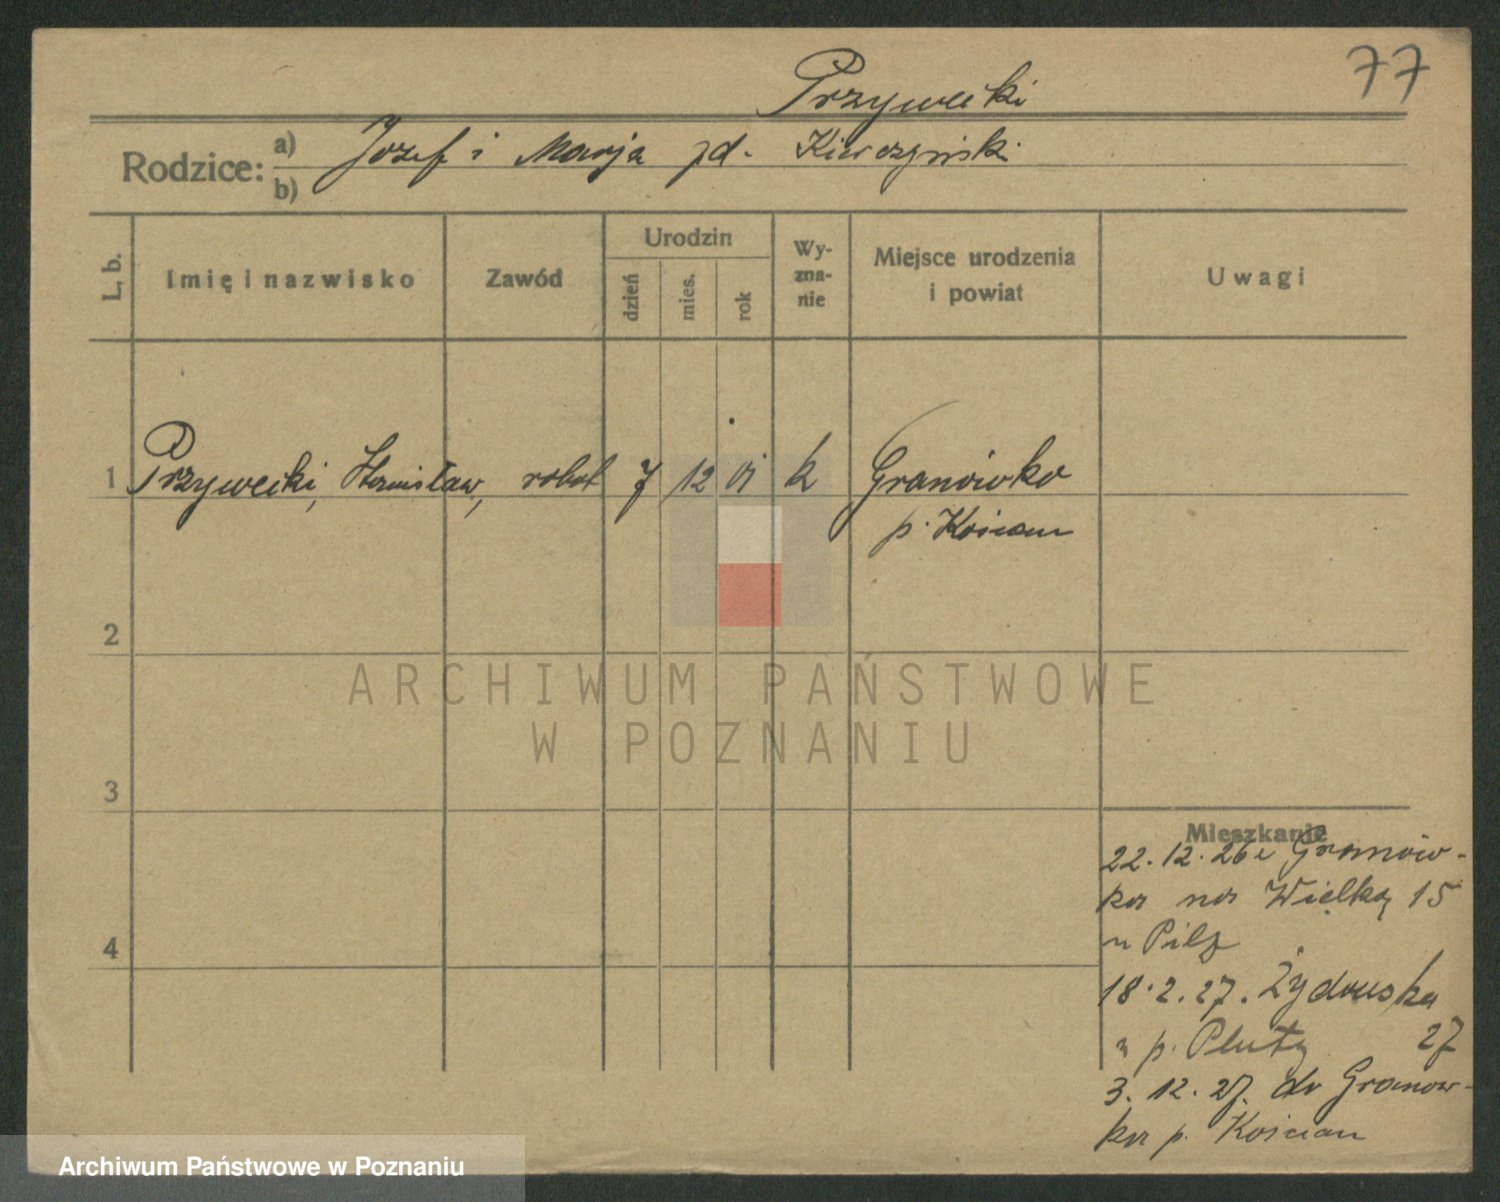 77
Przywecki
Rodzice: a) Józef i Marja zd.
b)
L. b.
Imię i nazwisko
Zawód
Urodzin
dzień
mies.
rok
Wy-
zna-
nie
Miejsce urodzenia
i powiat
Uwagi
1 Przywecki, Stanisław, robot 7 12 01 k Granówko
p. Kościan
2
3
4
Mieszkanie
22.12.26 z Granów-
ka na Wielką 15
u
18.2.27. Żydowska
u p. Pluty 27
3.12.27. do Granów-
ka p. Kościan
ARCHIWUM PAŃSTWOWE
W POZNANIU
Archiwum Państwowe w Poznaniu